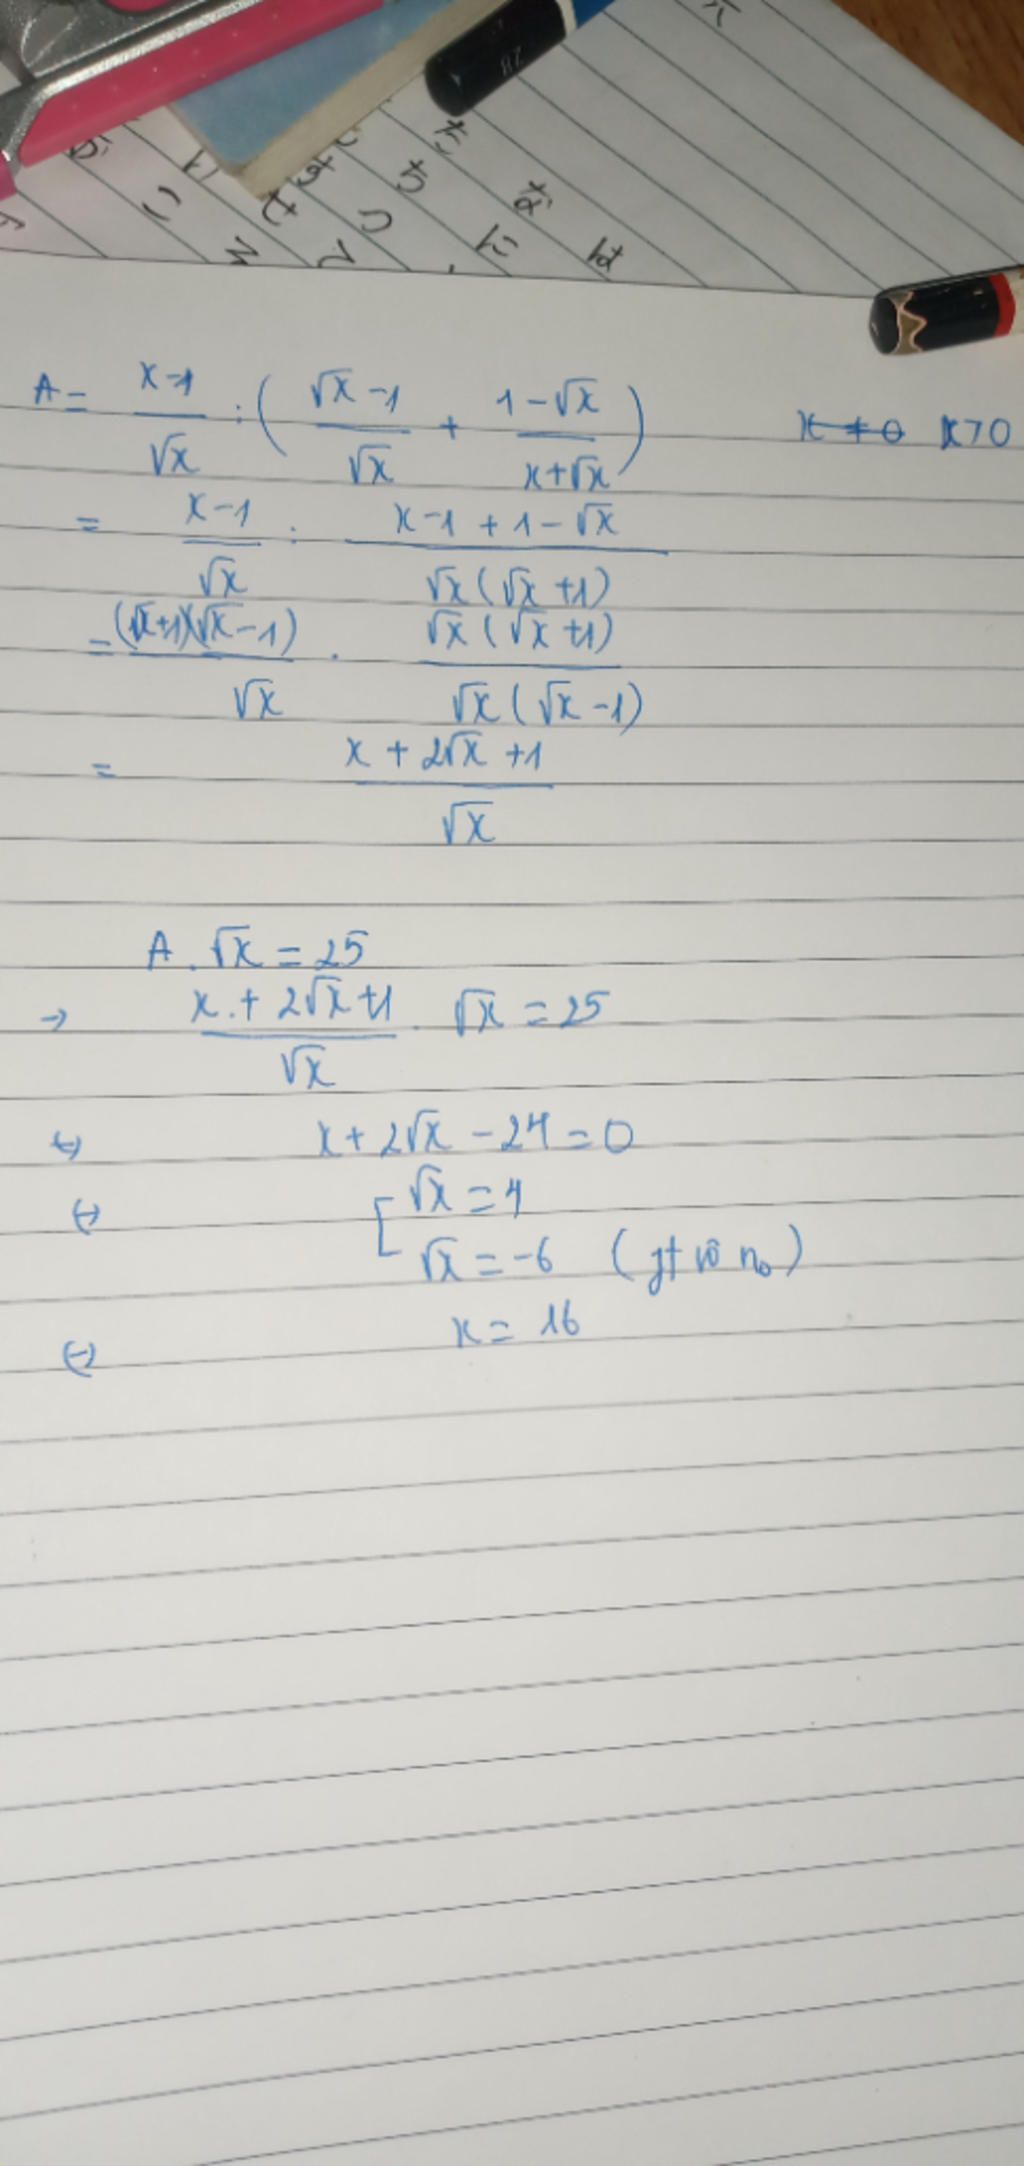 な
た
ち
は
に
つ
す
せ
て
こ
A = x-1/√x : ( √x-1/√x + 1-√x/x+√x ) x≠0 x>0
= x-1/√x : x-1+1-√x/√x(√x+1)
= (√x+1)(√x-1)/√x . √x(√x+1)/√x(√x-1)
= x+2√x+1/√x
A.√x = 25
→ x+2√x+1/√x . √x = 25
↔ x+2√x-24=0
↔ [ √x = 4
√x = -6 (pt vô no)
↔ x = 16